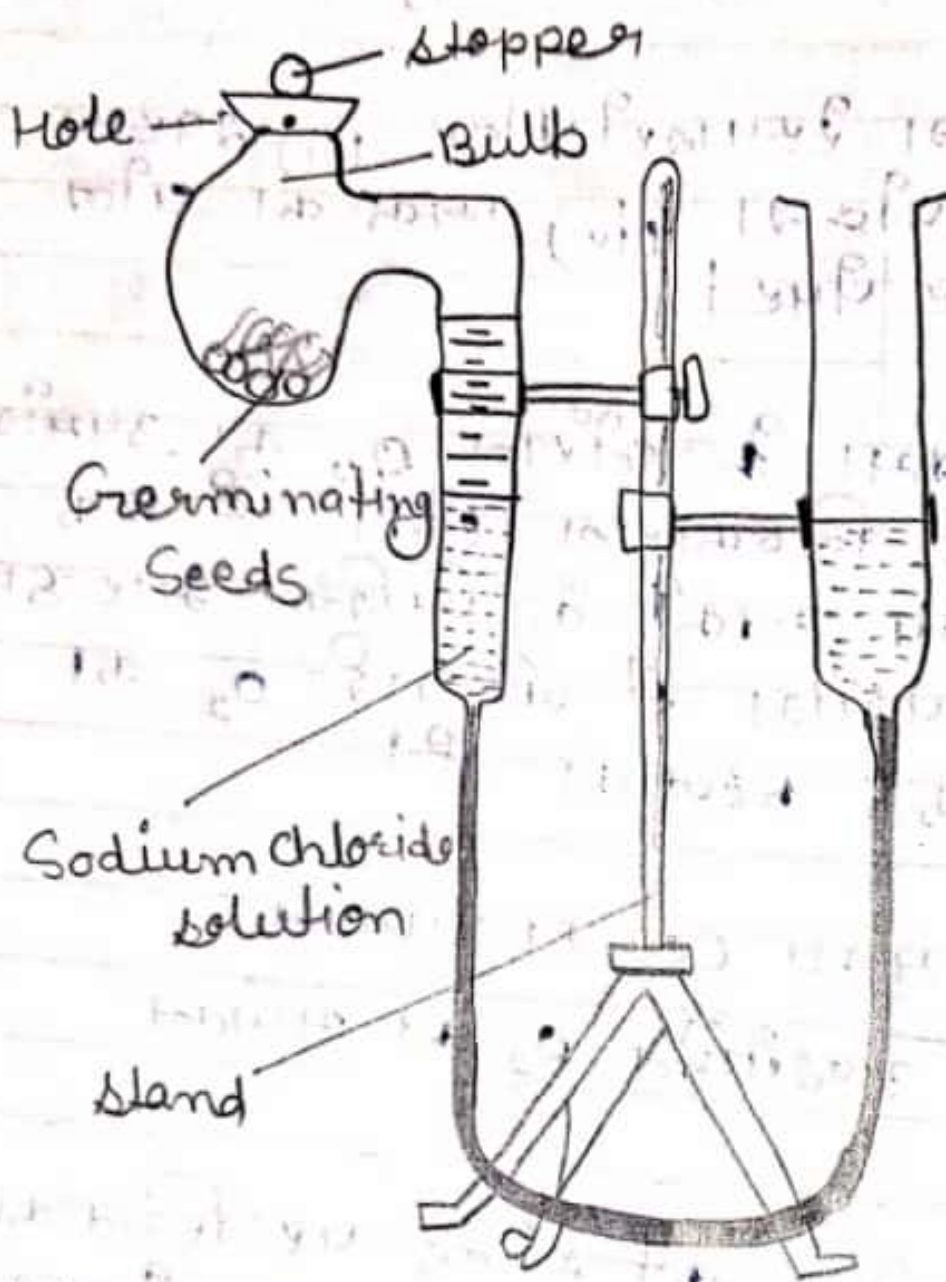 stopper
Hole
Bulb
Germinating
Seeds
Sodium Chloride
solution
stand